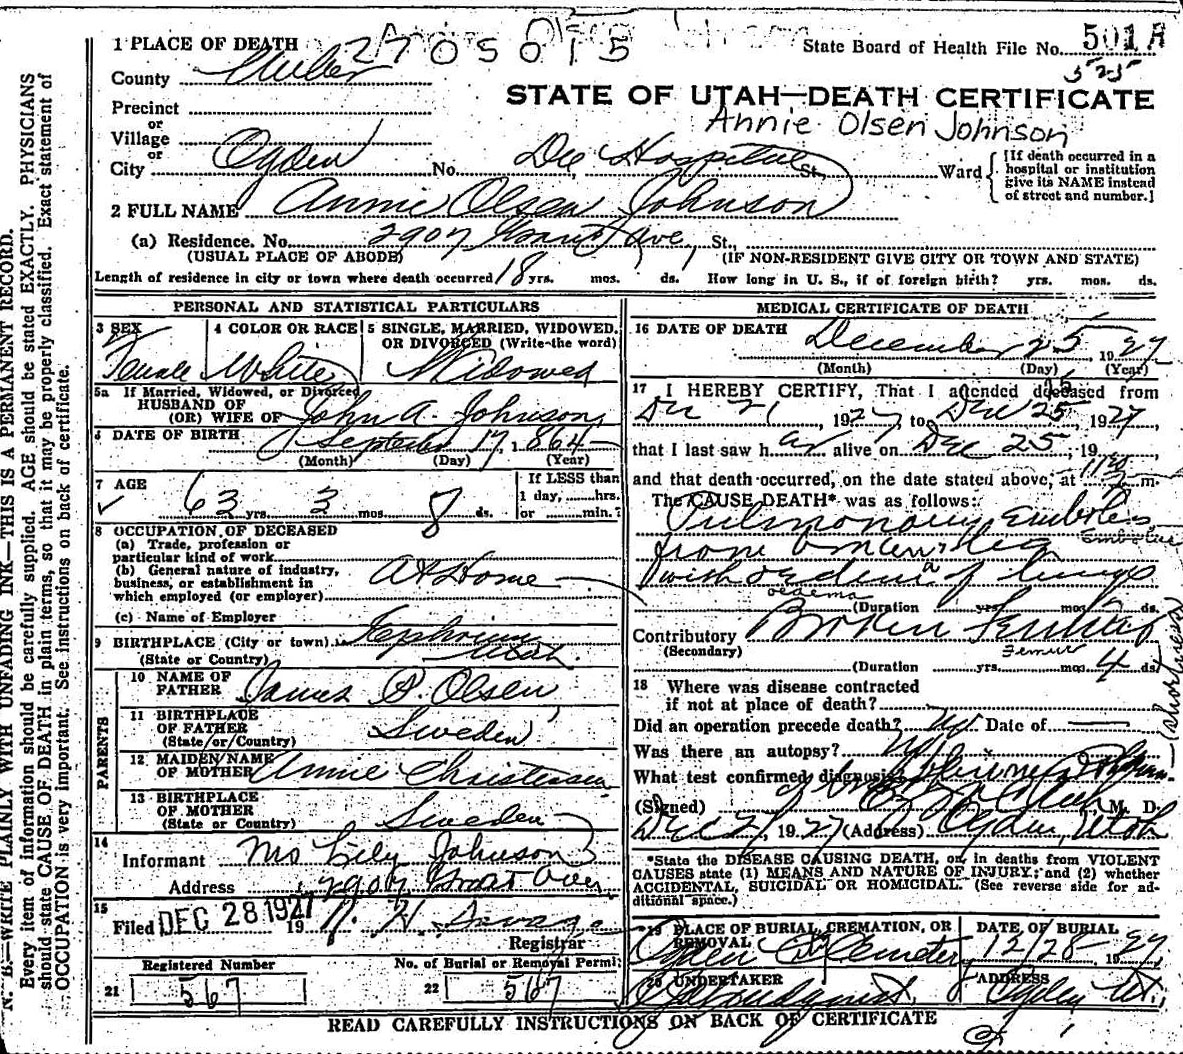 2705015
State Board of Health File No. 501 A
525
1 PLACE OF DEATH
County Weber
STATE OF UTAH—DEATH CERTIFICATE
Annie Olsen Johnson
Precinct
or
Village
or
City Ogden No. Dee Hospital St. Ward
[If death occurred in a hospital or institution give its NAME instead of street and number.]
2 FULL NAME Annie Olsen Johnson
(a) Residence. No. 2907 Grant Ave, St.,
(USUAL PLACE OF ABODE) (IF NON-RESIDENT GIVE CITY OR TOWN AND STATE)
Length of residence in city or town where death occurred 18 yrs. mos. ds. How long in U. S., if of foreign birth? yrs. mos. ds.
PERSONAL AND STATISTICAL PARTICULARS
3 SEX Female
4 COLOR OR RACE White
5 SINGLE, MARRIED, WIDOWED, OR DIVORCED (Write the word) Widowed
5a If Married, Widowed, or Divorced
HUSBAND OF
(OR) WIFE OF John A. Johnson
6 DATE OF BIRTH September 17, 1864
(Month) (Day) (Year)
7 AGE 63 yrs. 3 mos. 8 ds.
If LESS than
1 day, hrs.
or min.?
8 OCCUPATION OF DECEASED
(a) Trade, profession or
particular kind of work
(b) General nature of industry,
business, or establishment in
which employed (or employer) At Home
(c) Name of Employer
9 BIRTHPLACE (City or town) Ephriam
(State or Country) Utah.
PARENTS
10 NAME OF FATHER James P. Olsen
11 BIRTHPLACE OF FATHER (State or Country) Sweden
12 MAIDEN NAME OF MOTHER Annie Christensen
13 BIRTHPLACE OF MOTHER (State or Country) Sweden
14 Informant Mrs Lily Johnson
Address 2907 Grant Ave,
15 Filed DEC 28 1927 19
Registrar
Registered Number
21 567
No. of Burial or Removal Permit
22 567
MEDICAL CERTIFICATE OF DEATH
16 DATE OF DEATH December 25, 1927
(Month) (Day) (Year)
17 I HEREBY CERTIFY, That I attended deceased from
Dec 21, 1927, to Dec 25, 1927
that I last saw her alive on Dec 25, 19
and that death occurred, on the date stated above, at m.
The CAUSE DEATH* was as follows:
Pulmonary Embolus
Embolus
from
with oedema of lungs
oedema
(Duration yrs. mos. ds.
Contributory Broken Femur
(Secondary) Femur
(Duration yrs. mos. 4 ds.
18 Where was disease contracted
if not at place of death?
Did an operation precede death? Date of
Was there an autopsy?
What test confirmed diagnosis
(Signed) M. D.
Dec 27, 1927 (Address) Ogden, Utah
*State the DISEASE CAUSING DEATH, or, in deaths from VIOLENT
CAUSES state (1) MEANS AND NATURE OF INJURY; and (2) whether
ACCIDENTAL, SUICIDAL OR HOMICIDAL. (See reverse side for ad-
ditional space.)
19 PLACE OF BURIAL, CREMATION, OR REMOVAL Ogden Cemetery
DATE OF BURIAL 12/28- 1927
20 UNDERTAKER
ADDRESS Ogden Ut.
READ CAREFULLY INSTRUCTIONS ON BACK OF CERTIFICATE
N. B.—WRITE PLAINLY WITH UNFADING INK—THIS IS A PERMANENT RECORD.
Every item of information should be carefully supplied. AGE should be stated EXACTLY. PHYSICIANS
should state CAUSE OF DEATH in plain terms, so that it may be properly classified. Exact statement of
OCCUPATION is very important. See instructions on back of certificate.